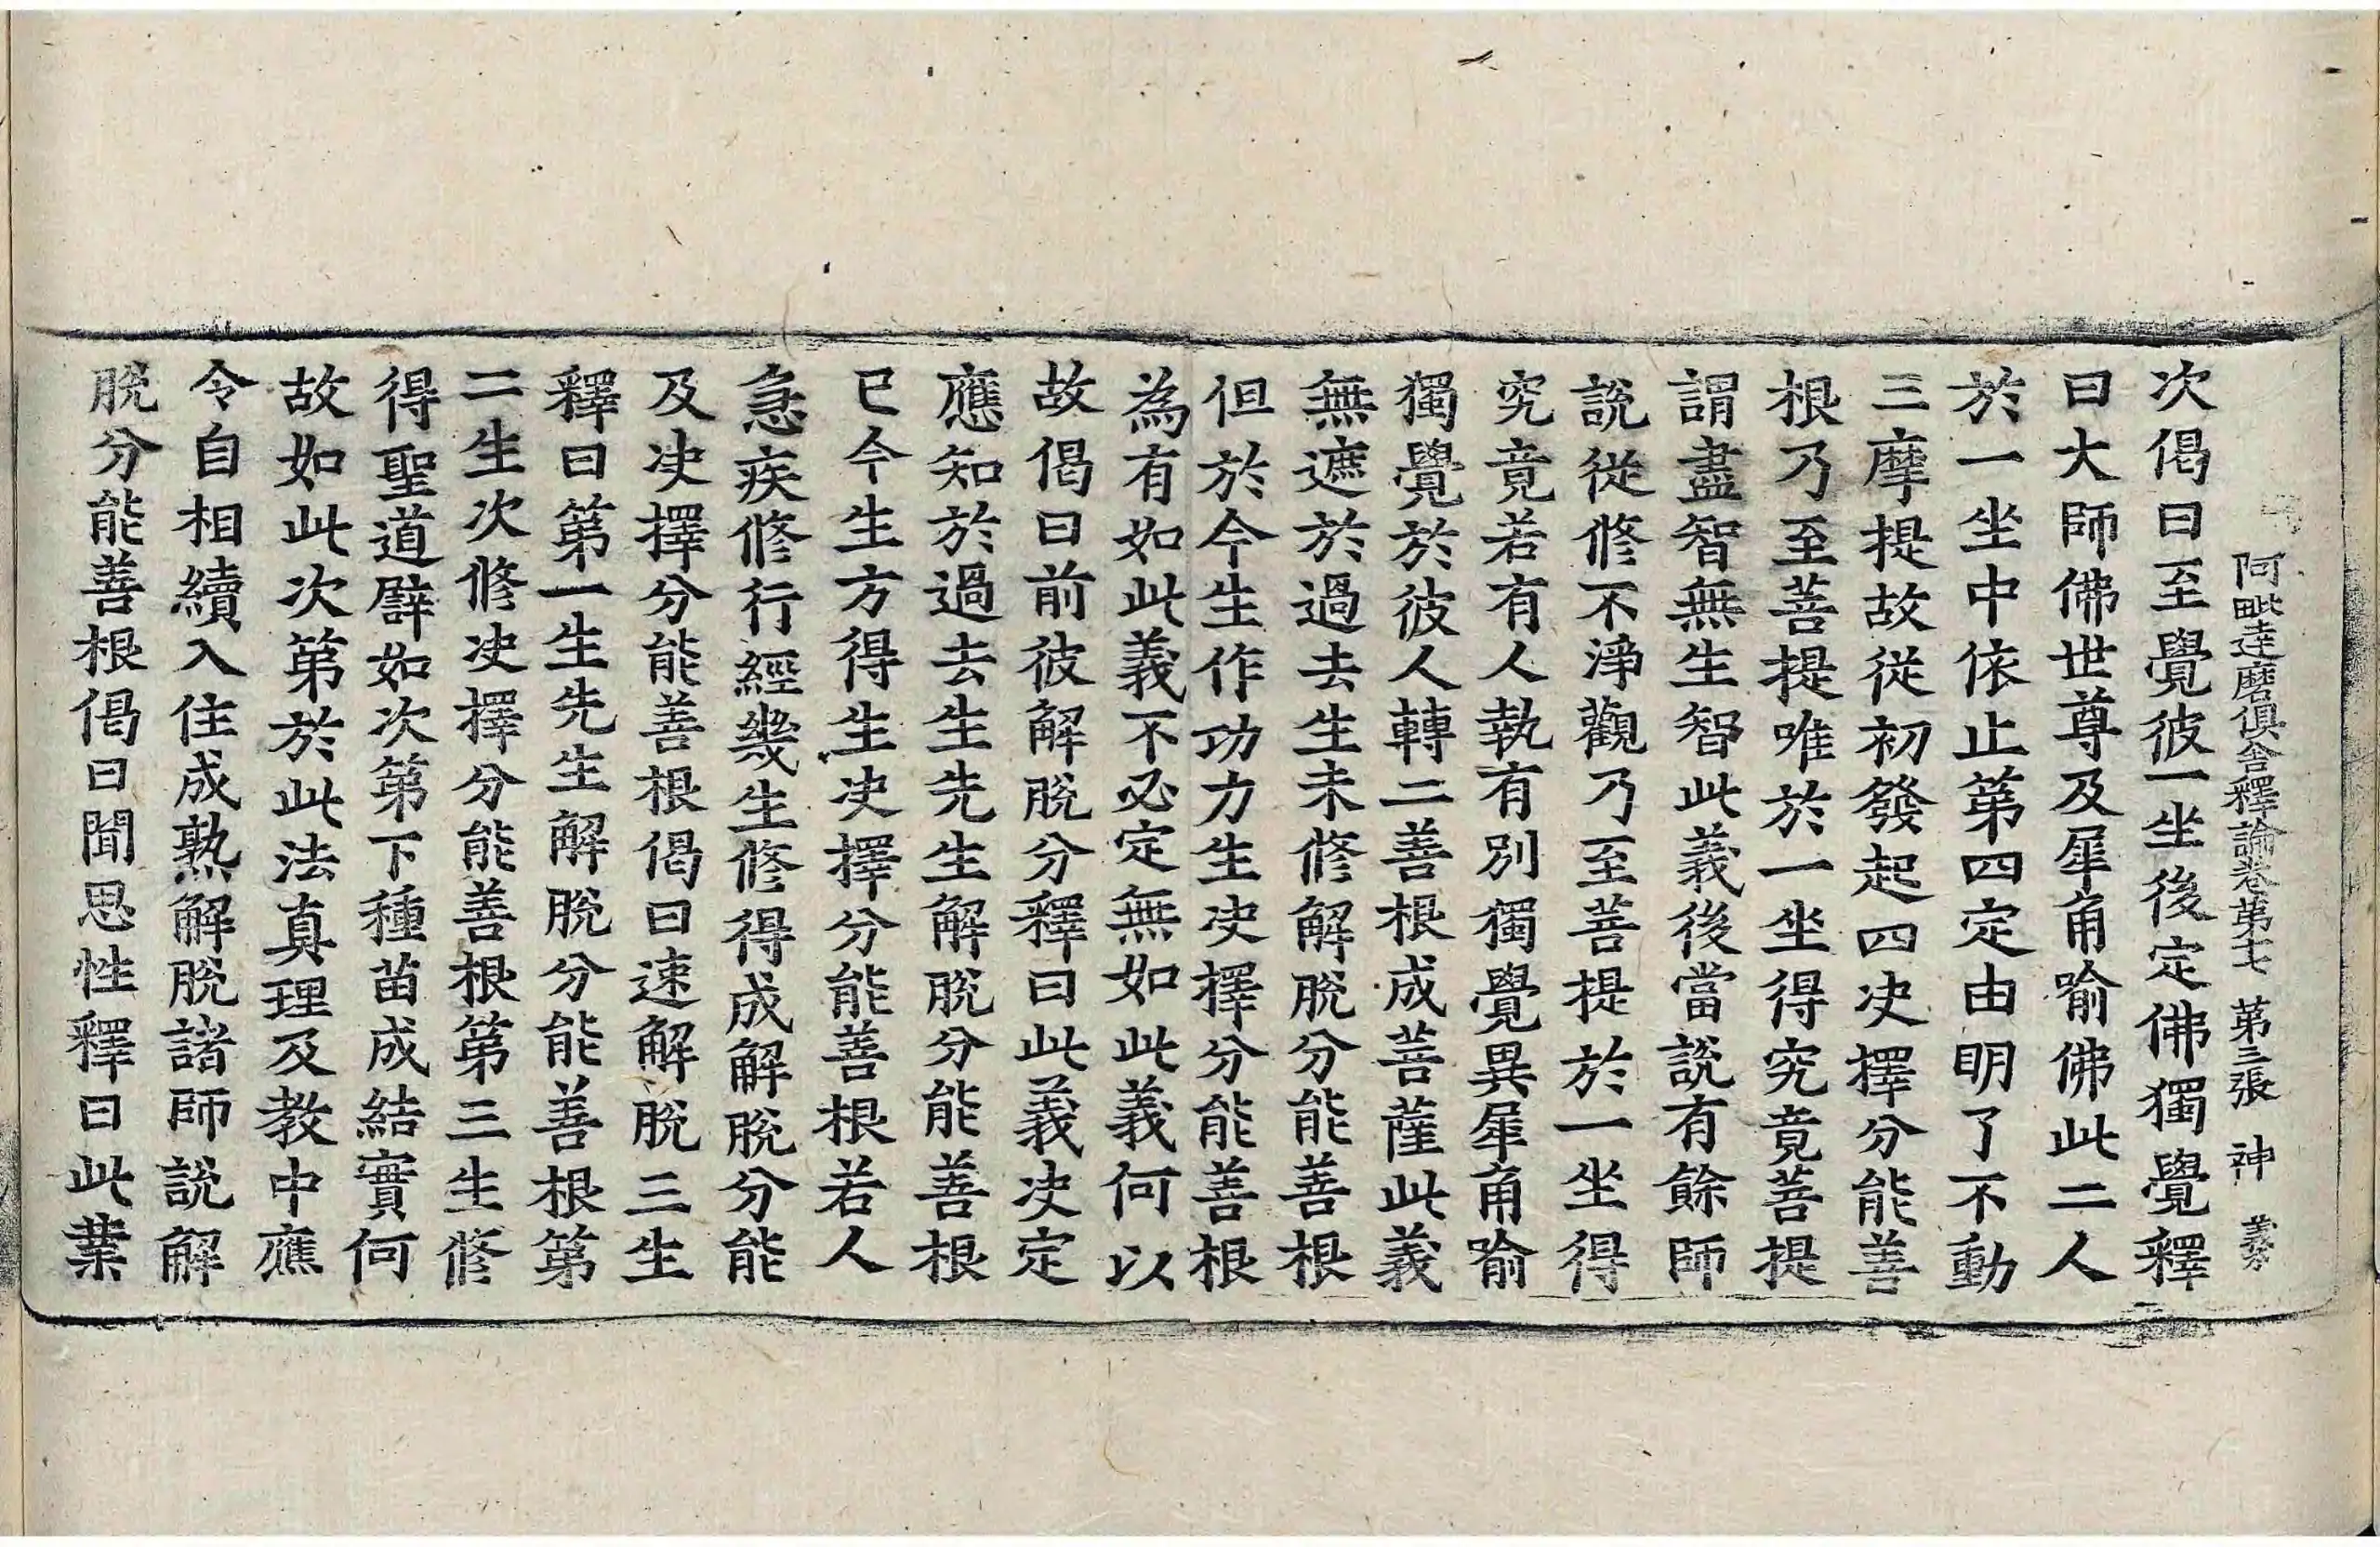 阿毗達磨俱舍釋論卷第十七 第三張 神 義芬
次偈曰至覺彼一坐後定佛獨覺釋
曰大師佛世尊及犀角喻佛此二人
於一坐中依止第四定由明了不動
三摩提故從初發起四决擇分能善
根乃至菩提唯於一坐得究竟菩提
謂盡智無生智此義後當說有餘師
說從修不淨觀乃至菩提於一坐得
究竟若有人執有別獨覺異犀角喻
獨覺於彼人轉二善根成菩薩此義
無遮於過去生未修解脫分能善根
但於今生作功力生决擇分能善根
為有如此義不必定無如此義何以
故偈曰前彼解脫分釋曰此義决定
應知於過去生先生解脫分能善根
已今生方得生决擇分能善根若人
急疾修行經幾生修得成解脫分能
及决擇分能善根偈曰速解脫三生
釋曰第一生先生解脫分能善根第
二生次修决擇分能善根第三生修
得聖道譬如次第下種苗成結實何
故如此次第於此法真理及教中應
令自相續入住成熟解脫諸師說解
脫分能善根偈曰聞思性釋曰此業